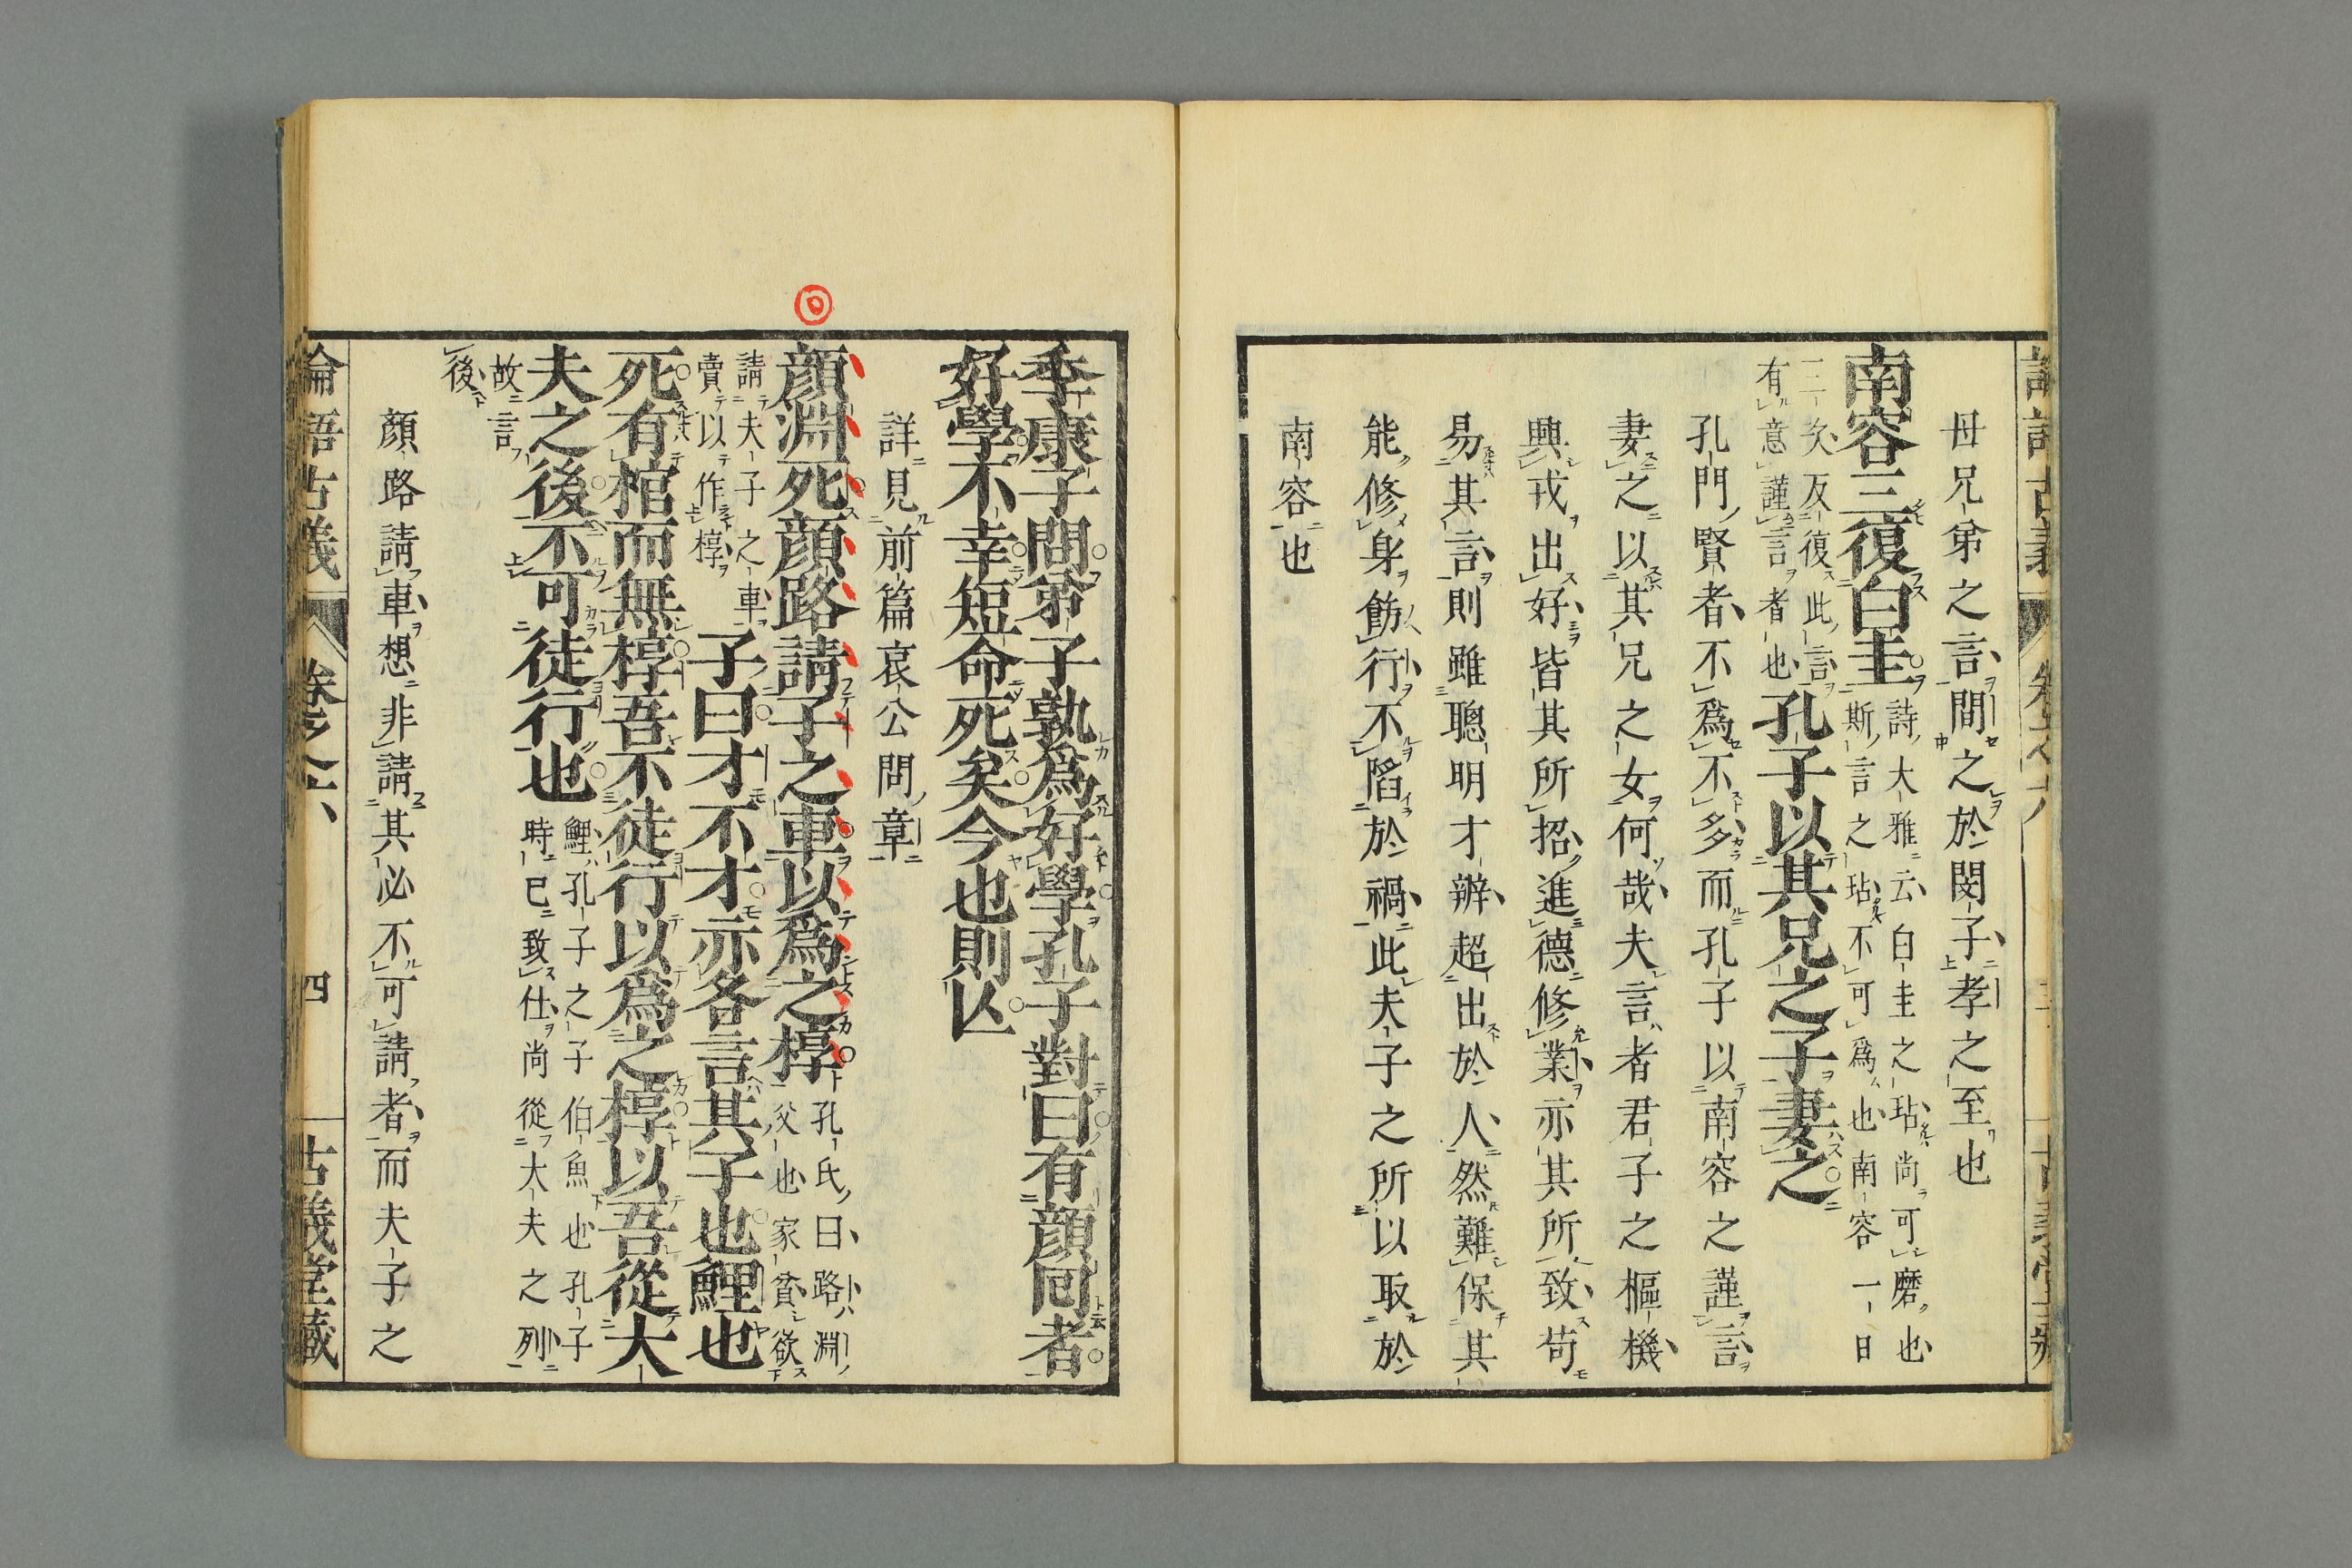 母兄弟之言間之於閔子孝之至也
南容三復白圭
詩大雅云白圭之玷尚可磨也
斯言之玷不可爲也南容一日
三次反復此言
有意謹言者也
孔子以其兄之子妻之
孔門賢者不爲不多而孔子以南容之謹言
妻之以其兄之女何哉夫言者君子之樞機
興戎出好皆其所招進德修業亦其所致苟
易其言則雖聰明才辨超出於人然難保其
能修身飭行不陷於禍此夫子之所以取於
南容也
季康子問弟子孰爲好學孔子對曰有顔囘者
好學不幸短命死矣今也則亾
詳見前篇哀公問章
顔淵死顔路請子之車以爲之椁
孔氏曰路淵
父也家貧欲
請夫子之車
賣以作椁
子曰才不才亦各言其子也鯉也
死有棺而無椁吾不徒行以爲之椁以吾從大
夫之後不可徒行也
鯉孔子之子伯魚也孔子
時已致仕尚從大夫之列
故言
後
顔路請車想非請其必不可請者而夫子之
論語古義
卷之六
四
古義堂藏